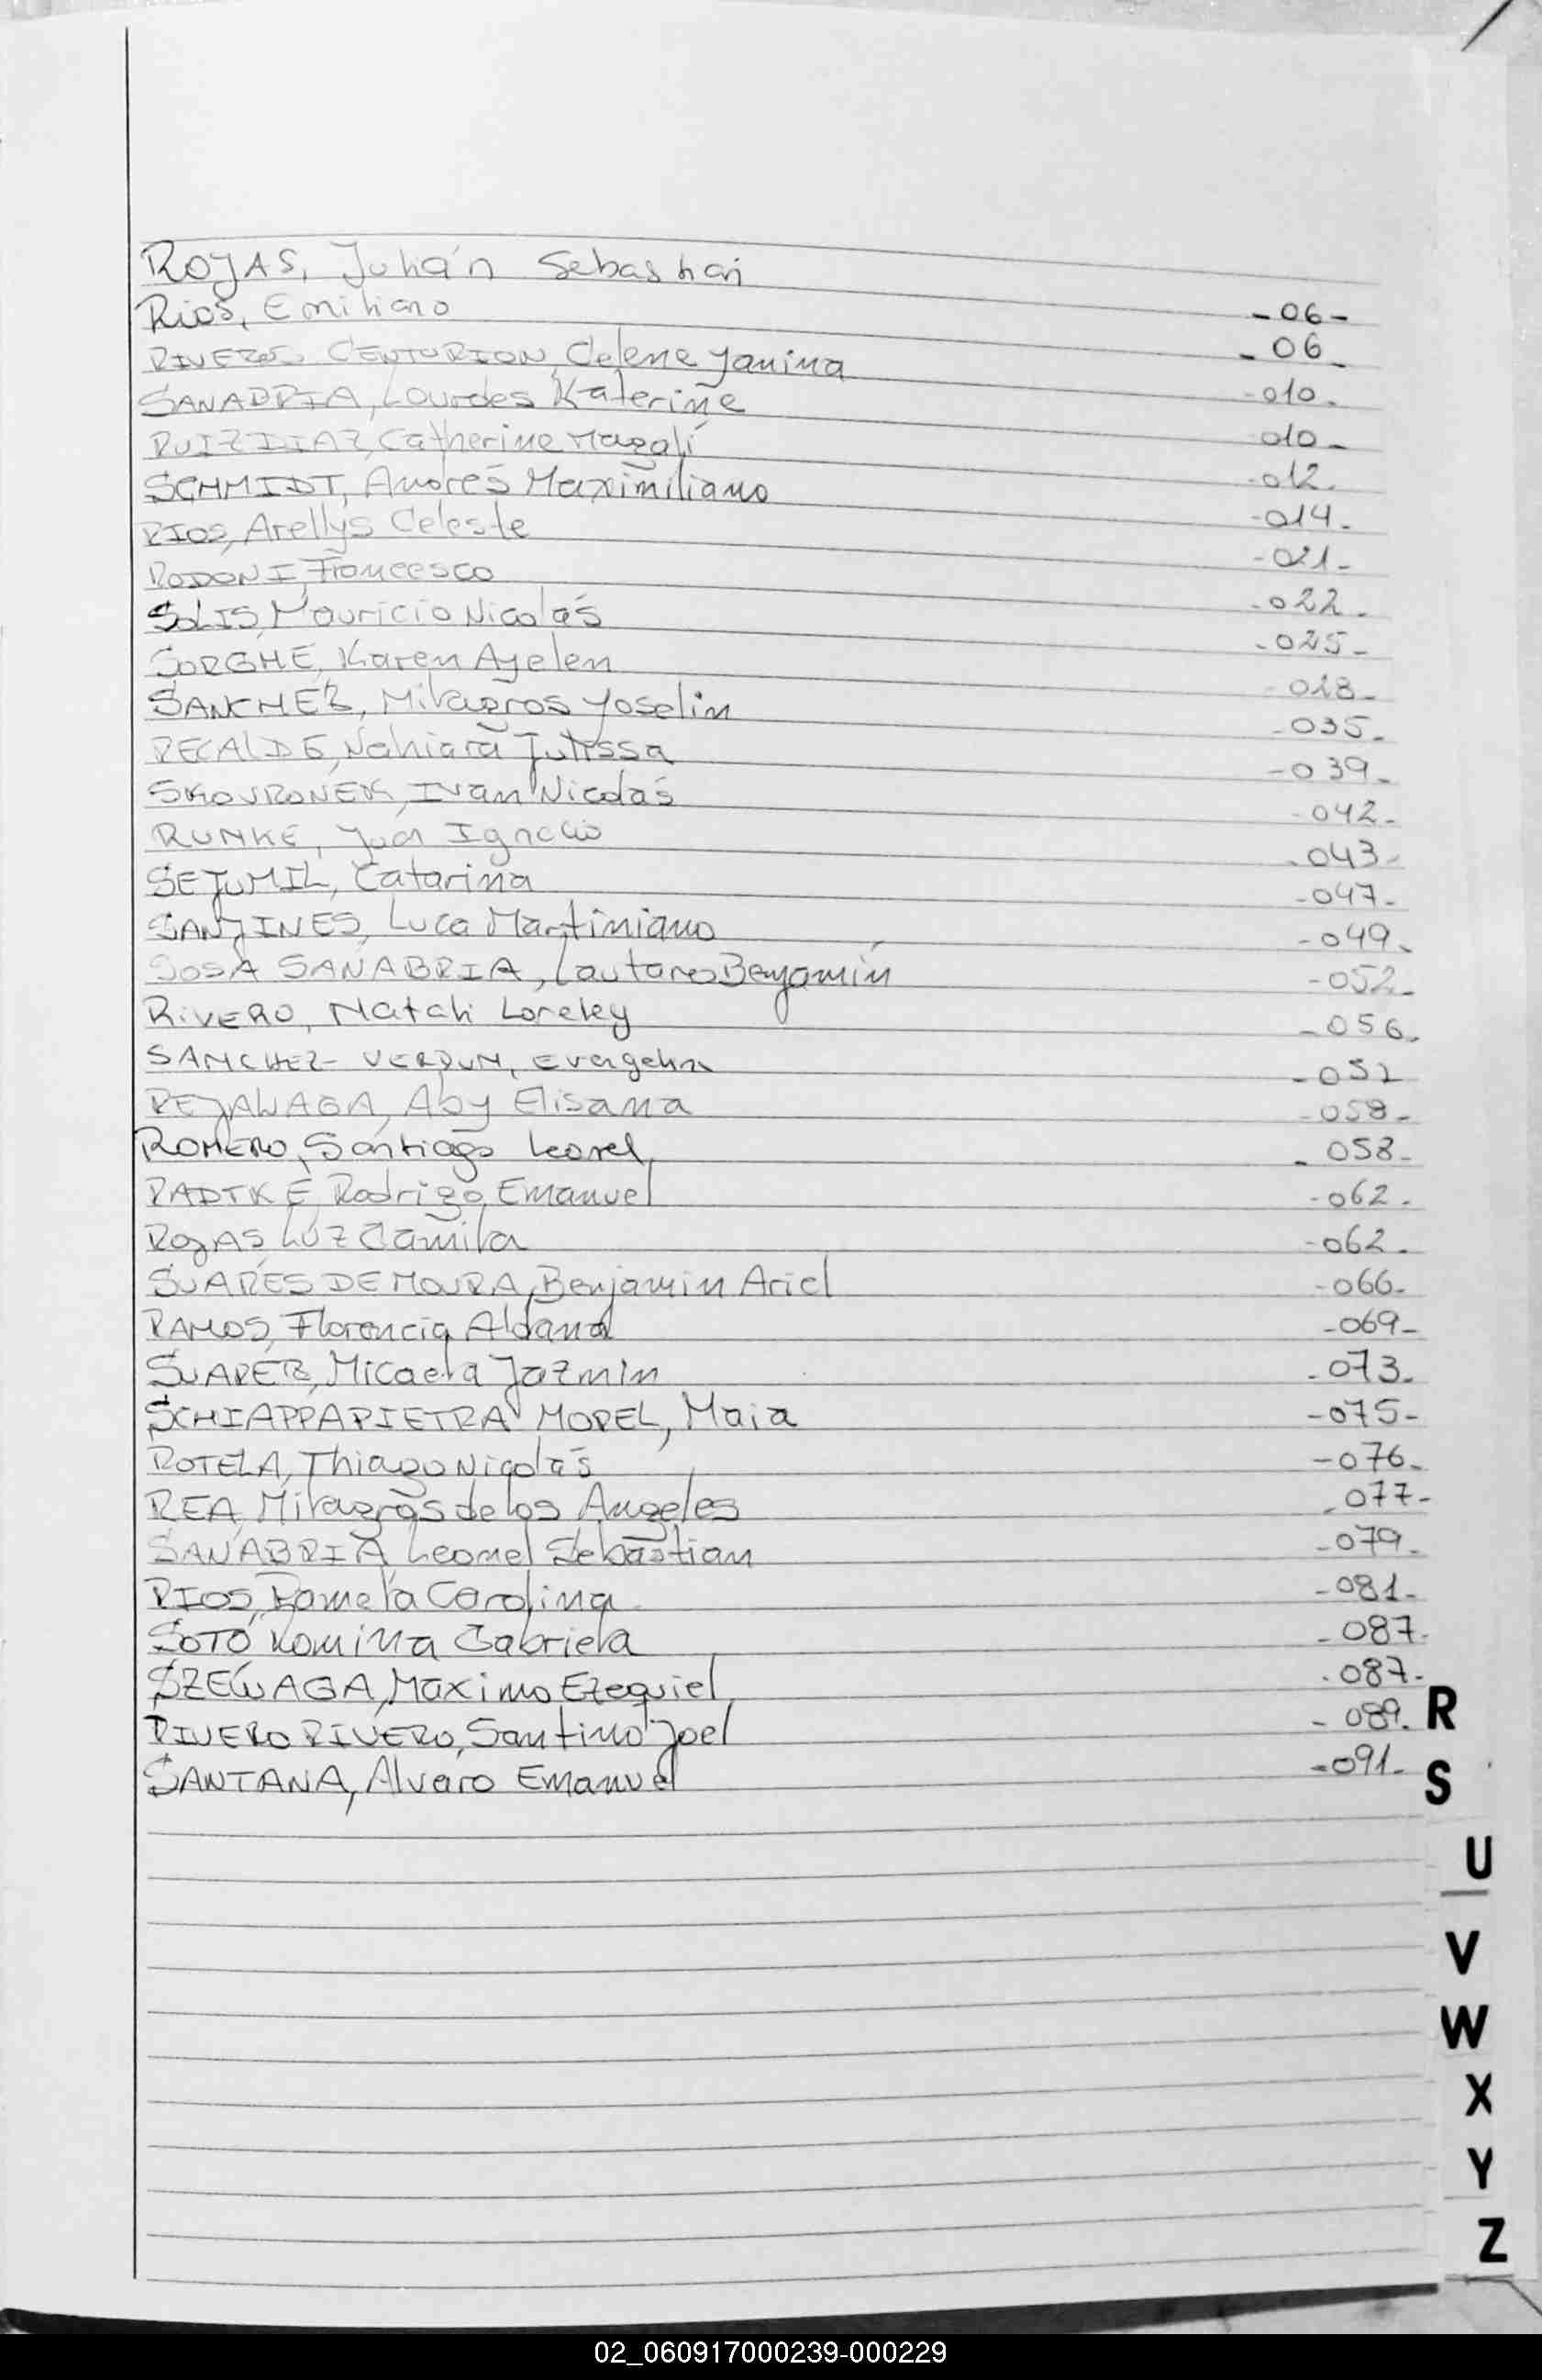 ROJAS, Julián Sebastian -06-
Rios, Emiliano - 06 -
RIVEROS CENTURION, Celene Yanina -010-
SANABRIA, Lourdes Katerine -010-
RUIZ DIAZ, Catherine Magalí -012-
SCHMIDT, Andrés Maximiliano -014-
RIOS, Arellys Celeste -021-
RODONI, Francesco -022-
SOLIS, Mauricio Nicolás -025-
SORGHE, Karen Ayelen -028-
SANCHEZ, Milagros Yoselin -035-
RECALDE, Nahiara Julissa -039-
SKOVRONEK, Ivan Nicolás -042-
RUNKE, Juan Ignacio -043-
SEJUMIL, Catarina -047-
SANJINES, Luca Martiniano -049-
SOSA SANABRIA, Lautaro Benjamín -052-
RIVERO, Natali Loreley -056-
SANCHEZ VERDUN, Evangelina -057
REJALAGA, Aby Elisama -058-
ROMERO, Santiago Leonel, - 058-
RADTKE, Rodrigo Emanuel -062-
ROJAS, Luz Camila -062-
SUARES DE MOURA, Benjamin Ariel -066-
RAMOS, Florencia Aldana -069-
SUAREZ, Micaela Jazmin -073-
SCHIAPPAPIETRA MOREL, Maia -075-
ROTELA, Thiago Nicolás -076-
REA, Milagros de los Angeles -077-
SANABRIA, Leonel Sebastian -079-
RIOS, Pamela Carolina -081-
SOTO Romina Gabriela -087-
SZEWAGA, Maximo Ezequiel -087-
RIVERO RIVERO, Santino Joel - 089-
SANTANA, Alvaro Emanuel -091-
R
S
U
V
W
X
Y
Z
02_060917000239-000229